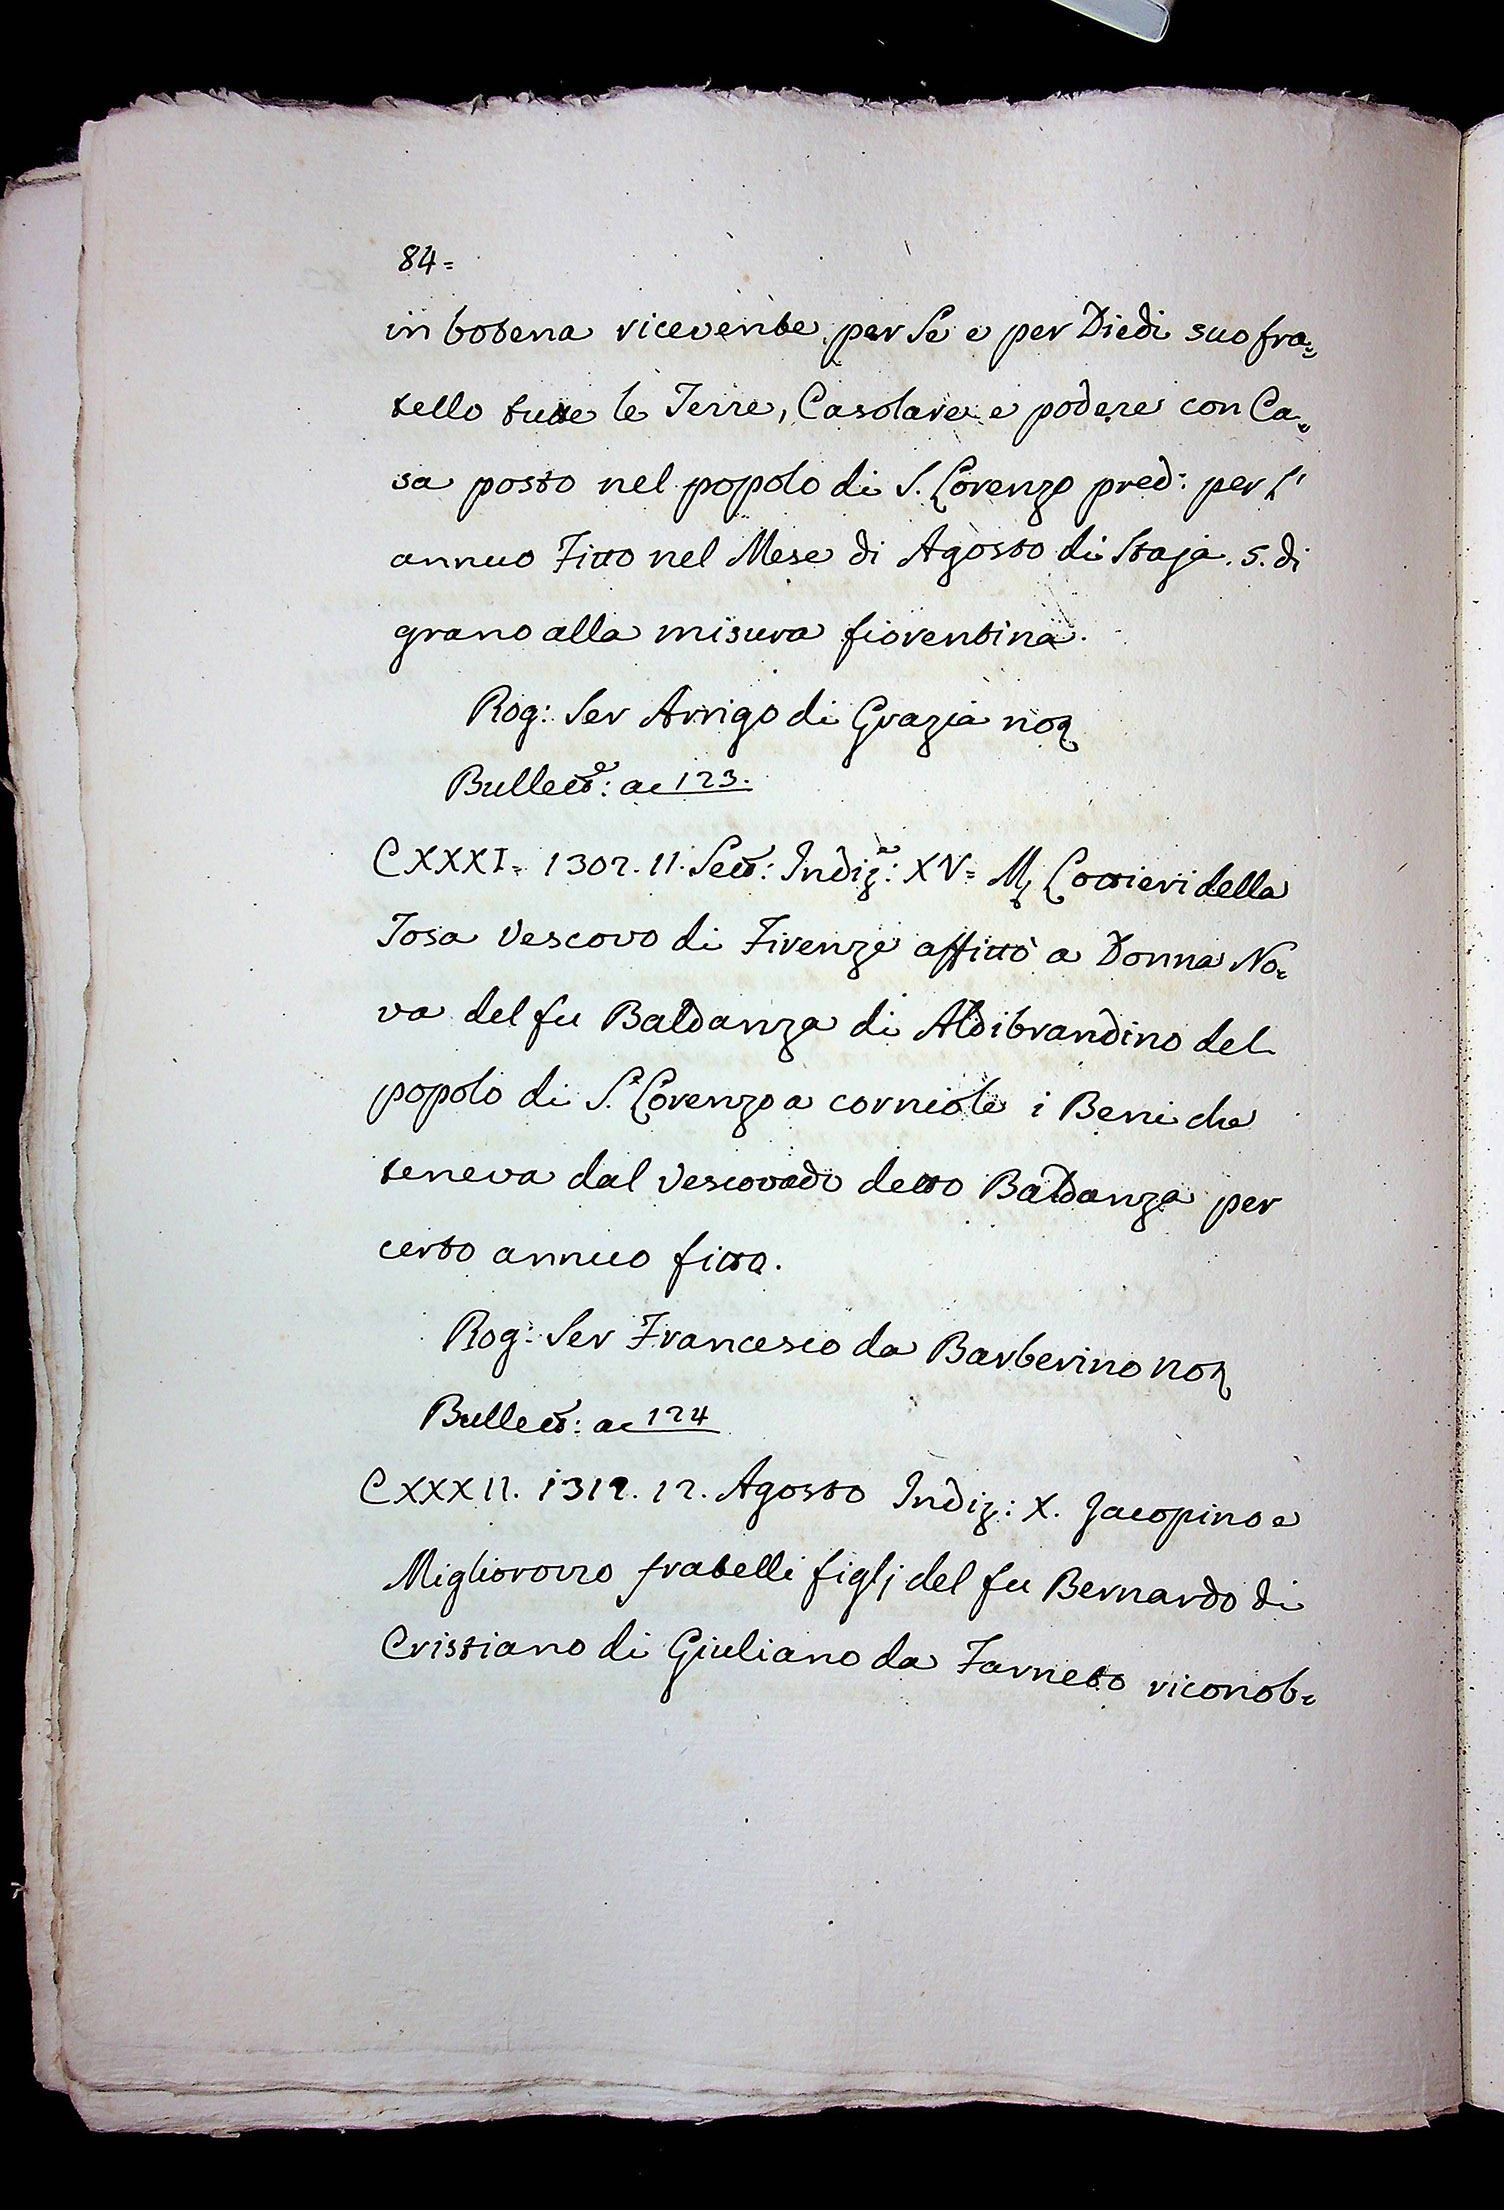 84=
in botena ricevente per Se e per Diedi suo fra=
tello tutte le Terre, Casolare e podere con Ca=
sa posto nel popolo di S. Lorenzo pred: per l'
annuo Fitto nel Mese di Agosto di Staja. 5. di
grano alla misura fiorentina.
Rog: Ser Arrigo di Grazia not
Bullett: a c 123.
CXXXI= 1302. 11. Sett: Indiz: XV= M Lottieri della
Tosa Vescovo di Firenze affittò a Donna No=
va del fu Baldanza di Aldibrandino del
popolo di S. Lorenzo a corniole i Beni che
teneva dal Vescovado detto Baldanza per
certo annuo fitto.
Rog: Ser Francesco da Barberino not
Bullett: a c 124
CXXXII. 1312. 12. Agosto Indiz: X. Jacopino e
Migliorozzo fratelli figlj del fu Bernardo di
Cristiano di Giuliano da Farneto riconob=